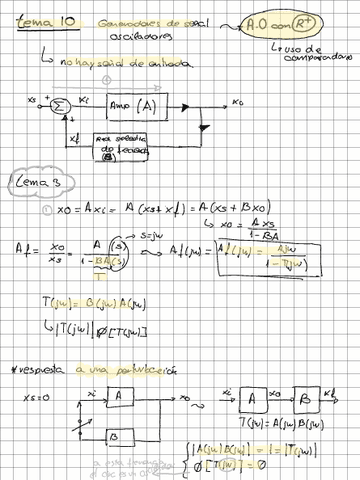 tema 10 Generadores de señal → A.O con R+
osciladores
↳ uso de comparadores
↳ no hay señal de entrada
①
xs + Σ xi Amp (A) xo
+
xf Red selectiva
de frecuencia
(B)
tema 3
① xo = A xi = A (xs + xf) = A (xs + B xo)
↳ xo = A xs / 1 - BA
Af = xo / xs = A (s) / 1 - BA(s) → s=jw → Af(jw) = Af(jw) = A(jw) / 1 - T(jw)
T
T(jw) = B(jw) A(jw)
↳ |T(jw)| ϕ[T(jw)]
* respuesta a una perturbación
xs = 0 xi A xo → xi A xo B xf
B
T(jw) = A(jw) B(jw)
{ |A(jw) B(jw)| = 1 = |T(jw)|
ϕ[T(jw)] = 0